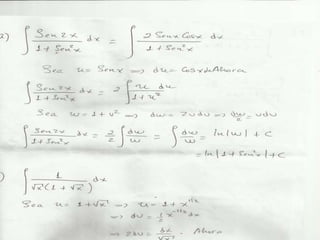 2) ∫ Sen2x / 1+Sen²x dx = ∫ 2 Senx Cosx dx / 1+Sen²x
Sea u= Senx => du= Cosxdx Ahora
∫ Sen2x / 1+Sen²x dx = 2 ∫ u du / 1+u²
Sea w = 1+u² => dw = 2udu => dw/2 = udu
∫ Sen2x / 1+Sen²x dx = 2/2 ∫ dw/w = ∫ dw/w = ln|w| + C
= ln|1+Sen²x|+C
) ∫ 1 / √x(1+√x) dx
Sea u= 1+√x => u= 1+x^1/2
=> du= 1/2 x^-1/2 dx
=> 2du= dx/√x . Ahora